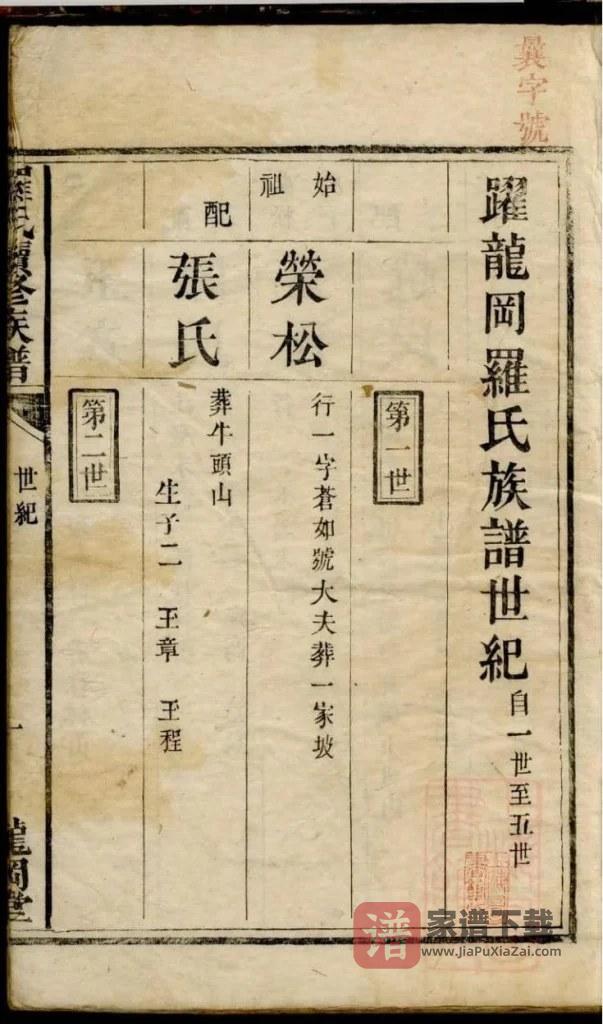 曩字號
躍龍岡羅氏族譜世紀 自一世至五世
第一世
始祖
榮松
行一字蒼如號大夫葬一家坡
配
張氏
葬牛頭山
生子二 王章 王程
第二世
羅氏續修族譜
世紀
一
龍岡堂
谱 家谱下载
www.JiaPuXiaZai.com